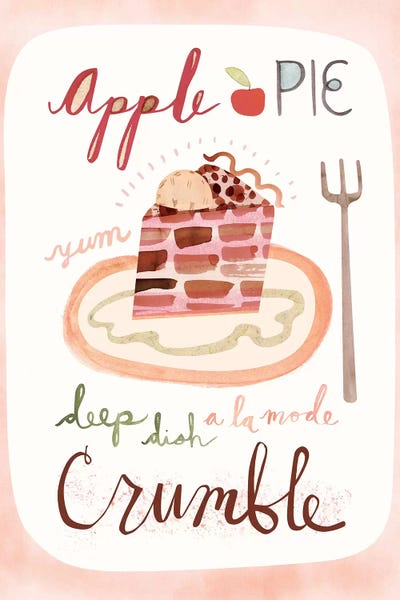 Apple PIE
yum
deep dish a la mode
& Crumble